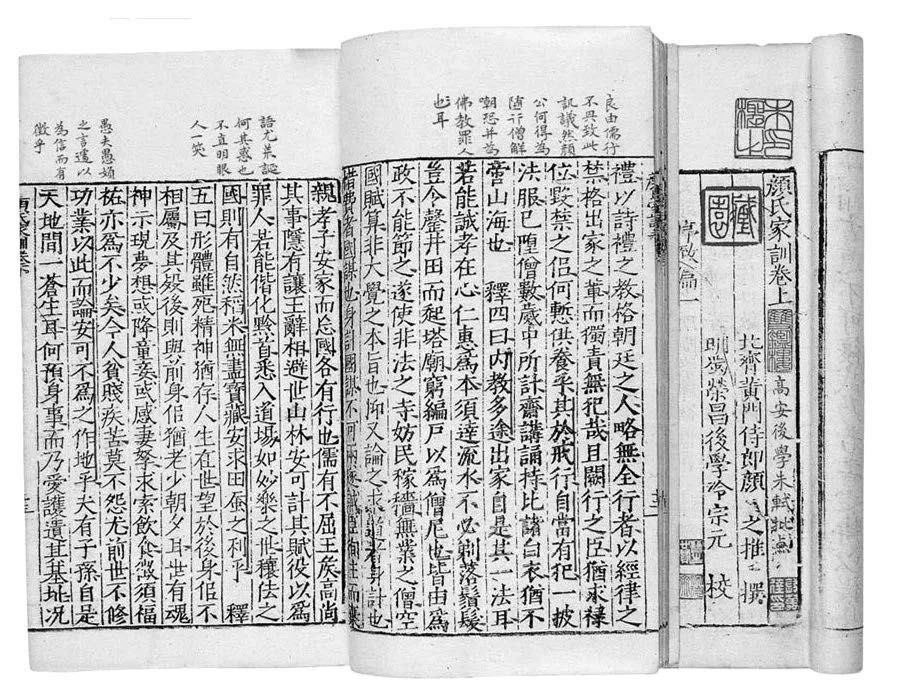 顏氏家訓卷上
高安後學朱軾批點
北齊黃門侍郎顏之推撰
明蜀榮昌後學泠宗元校
序致篇一
良由儒行
不興致此
訊議然顏
公何得為
隨行僧解
嘲恐并為
佛教罪人
也耳
禮以詩禮之教格朝廷之人略無全行者以經律之
禁格出家之輩而獨責無犯哉且闕行之臣猶求祿
位毀禁之侶何慙供養乎其於戒行自當有犯一披
法服已墮僧數歲中所計齋講誦持比諸白衣猶不
啻山海也 釋四曰内教多途出家自是其一法耳
若能誠孝在心仁惠爲本須達流水不必剃落鬚髮
豈令罄井田而起塔廟窮編戶以爲僧尼也皆由爲
政不能節之遂使非法之寺妨民稼穡無業之僧空
國賦算非大覺之本旨也抑又論之求道者身計也
惜費者國謀也身計國謀不可兩遂誠臣徇主而棄
語尤荒誕
何其惑也
不直明眼
人一笑
愚夫愚婦
之言遽以
為信而有
徵乎
親孝子安家而忘國各有行也儒有不屈王侯高尚
其事隱有讓王辭相避世山林安可計其賦役以爲
罪人若能偕化黔首悉入道場如妙樂之世穰佉之
國則有自然稻米無盡寶藏安求田蠶之利乎 釋
五曰形體雖死精神猶存人生在世望於後身似不
相屬及其殁後則與前身似猶老少朝夕耳世有魂
神示現夢想或降童妾或感妻孥求索飲食徵須福
祐亦爲不少矣今人貧賤疾苦莫不怨尤前世不修
功業以此而論安可不爲之作地乎夫有子孫自是
天地間一蒼生耳何預身事而乃愛護遺其基址況